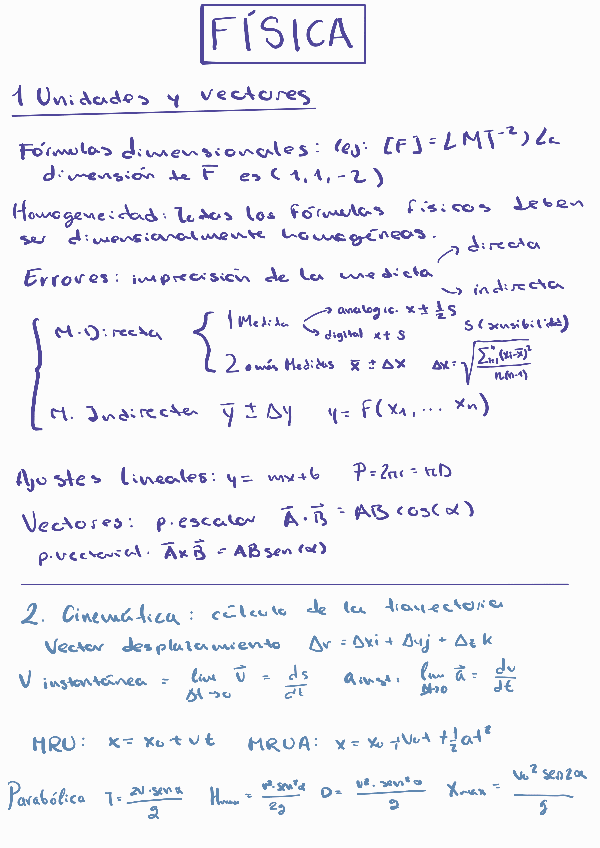 FÍSICA
1 Unidades y vectores
Fórmulas dimensionales: (ej: [F] = LMT⁻²) La
dimensión de F̅ es (1,1,-2)
Homogeneidad: Todas las fórmulas físicas deben
ser dimensionalmente homogéneas.
Errores: imprecisión de la medida → directa
→ indirecta
M. Directa { 1 Medida → analogic. x ± ½ S
→ digital x ± S S (sensibilidad)
2 o más Medidas x̅ ± Δx Δx = √(∑ⁿᵢ₌₁(xi-x̅)²/n(n-1))
M. Indirecta y̅ ± Δy y = F(x₁, ... xn)
Ajustes lineales: y = mx+b P = 2πr = πD
Vectores: p.escalar A⃗ · B⃗ = AB cos(α)
p.vectorial. A⃗ x B⃗ = AB sen(α)
2. Cinemática: cálculo de la trayectoria
Vector desplazamiento Δr = Δxi + Δyj + Δzk
V instantánea = lim Δt→0 v⃗ = ds/dt a inst. lim Δt→0 a⃗ = dv/dt
MRU: x = x₀ + vt MRUA: x = x₀ + V₀t + ½at²
Parabólica T = 2V·senα/g Hmax = v²·sen²α/2g D = v²·sen²α/g Xmax = V₀² sen2α/g